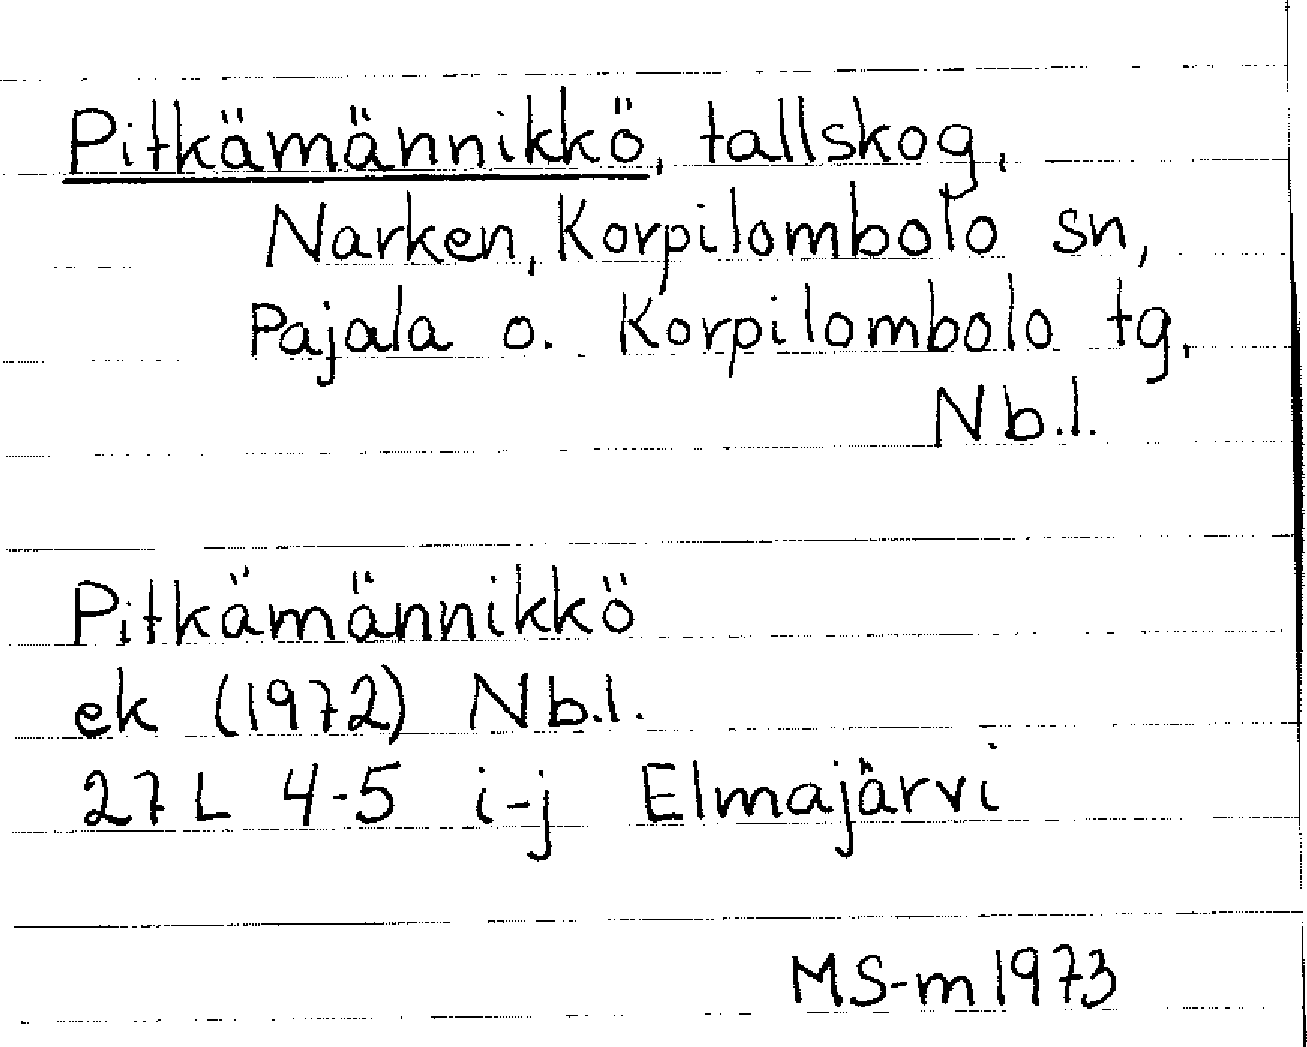 Pitkämännikkö, tallskog,
Narken, Korpilombolo sn,
Pajala o. Korpilombolo tg,
Nb.l.
Pitkämännikkö
ek (1972) Nb.l.
27 L 4-5 i-j Elmajärvi
MS-m 1973